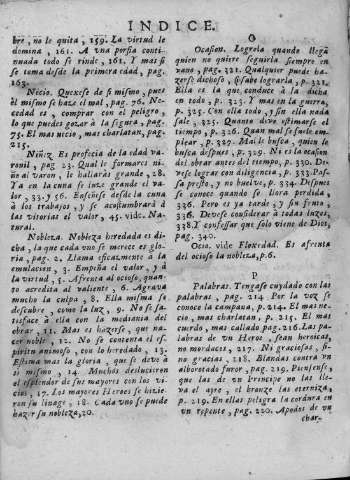 INDICE.
bre, no le quita, 159. La virtud le
domina, 161. A vna porfia conti-
nuada todo se rinde, 161. Y mas si
se toma desde la primera edad, pag.
163.
Necio. Quexese de si mismo, pues
èl mismo se haze el mal, pag. 76. Ne-
cedad es, comprar con el peligro,
lo que puedes gozar à la segura, pag.
75. El mas necio, mas charlatan, pag.
215.
Niñez Es profecia de la edad va-
ronil, pag 23. Qual le formares ni-
ño al varon, le hallaràs grande, 28.
Ya en la cuna se ve grande el va-
lor, 33. y 56. Enseñese desde la cuna
à los trabajos, y se acostumbrarà à
las vitorias el valor, 45. vide. Na-
tural.
Nobleza. Nobleza heredada es di-
cha, la que cada vno se merece es glo-
ria, pag. 2. Llama eficazmente à la
emulacion, 3. Empeña el valor, y à
la virtud, 5. Afrenta al ocioso, quan-
to acredita al valiente, 6. Agrava
mucho la culpa, 8. Ella misma se
descubre, como la luz, 9. No se sa-
tisface à ella con la mediania del
obrar, 11. Mas es hazerse, que na-
cer noble, 12. No se contenta el es-
piritu animoso, con lo heredado, 13.
Estima mas la gloria, que se deve à
si mismo, 14. Muchos desluzieron
el esplendor de sus mayores con los vi-
cios, 17. Los mayores Heroes se hizie-
ron su linage, 18. Cada vno se puede
hazer su nobleza, 20.
O
Ocasion. Logrela quando llega
quien no quiere seguirla siempre en
vano, pag. 321. Qualquier puede ha-
zerse dichoso, si sabe lograrla, p. 321.
Ella es la que conduce à la dicha
en todo, p. 323. Y mas en la guerra,
p. 325. Con ella todo, y sin ella nada
sale, 325. Quanto deve estimarse el
tiempo, p. 326. Quan mal se suele em-
plear, p. 327. Mal le busca, quien la
busca despues, p. 329. No es la ocasion
del obrar antes del tiempo, p. 330. De-
vese lograr con diligencia, p. 333. Pas-
sa presto, y no buelve, p. 334. Despues
se conoce quando se llora perdida,
p. 336. Pero es ya tarde, y sin fruto,
p. 336. Devese considerar à todas luzes,
338. Y confessar que solo viene de Dios,
pag. 340.
Ocio. vide Floxedad. Es afrenta
del ocioso la nobleza, p. 6.
P
Palabras. Tengase cuydado con las
palabras, pag. 214. Por la voz se
conoce la campana, p. 214. El mas ne-
cio, mas charlatan, p. 215. El mas
cuerdo, mas callado pag. 216. Las pa-
labras de vn Heroe, sean heroicas,
no mordaces, 217. Ni graciosas, si-
no gracias, 218. Blandas contra vn
alborotado furor, pag. 219. Piensense,
que las de vn Principe no las lle-
va el ayre, el bronze las eterniza,
p. 219. En ellas peligra la cordura en
vn repente, pag. 220. Apodos de vn
char-